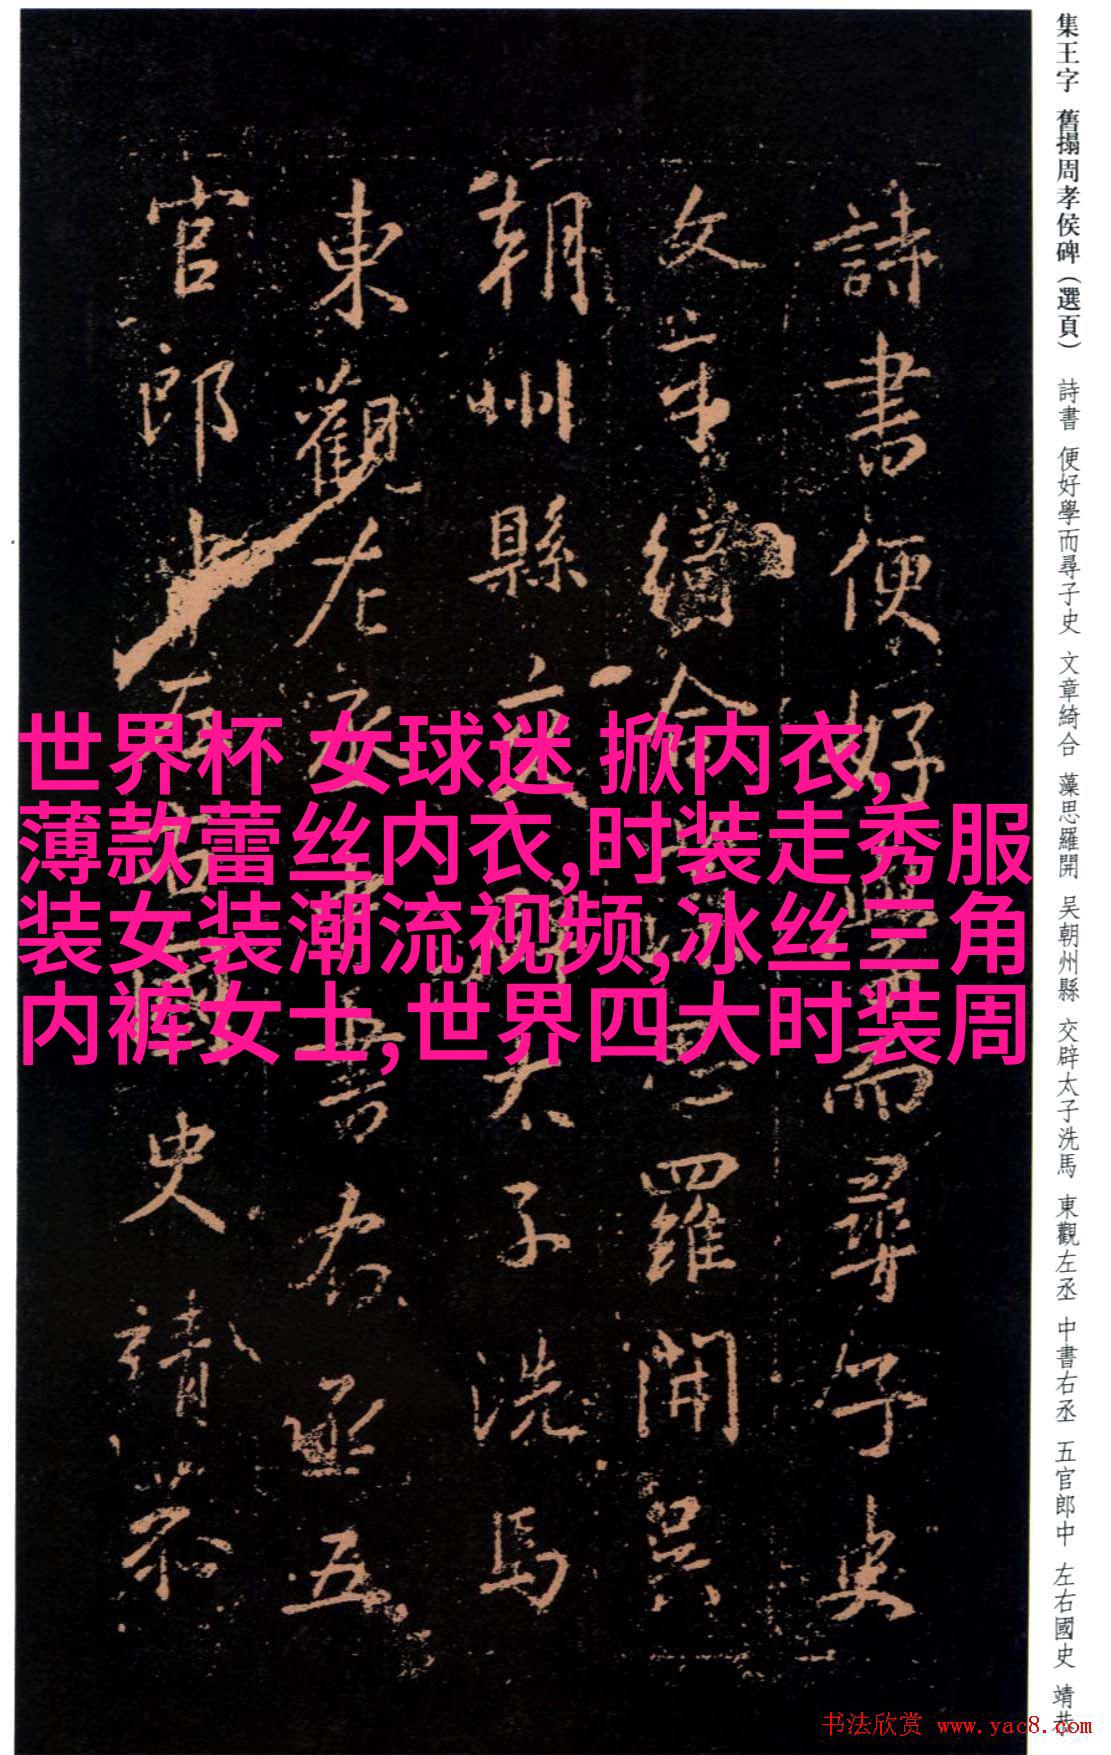 集王字 舊搨周孝侯碑(選頁) 詩書 便好學而尋子史 文章綺合 藻思羅開 吴朝州縣 交辟太子洗馬 東觀左丞 中書右丞 五官郎中 左右國史 靖恭
詩書便好學而尋子史
文章綺合藻思羅開吴
朝州縣交辟太子洗馬
東觀左丞中書右丞五
官郎中左右國史靖恭
世界杯 女球迷 掀内衣,
薄款蕾丝内衣,时装走秀服
装女装潮流视频,冰丝三角
内裤女士,世界四大时装周
书法欣赏 www.yac8.com